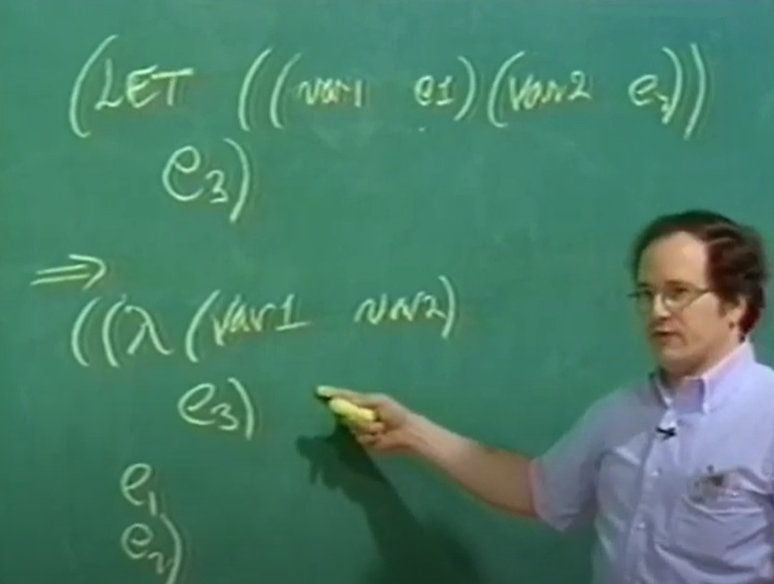 (LET ((var1 e1) (var2 e2))
e3)
⇒
((λ (var1 var2)
e3)
e1
e2)